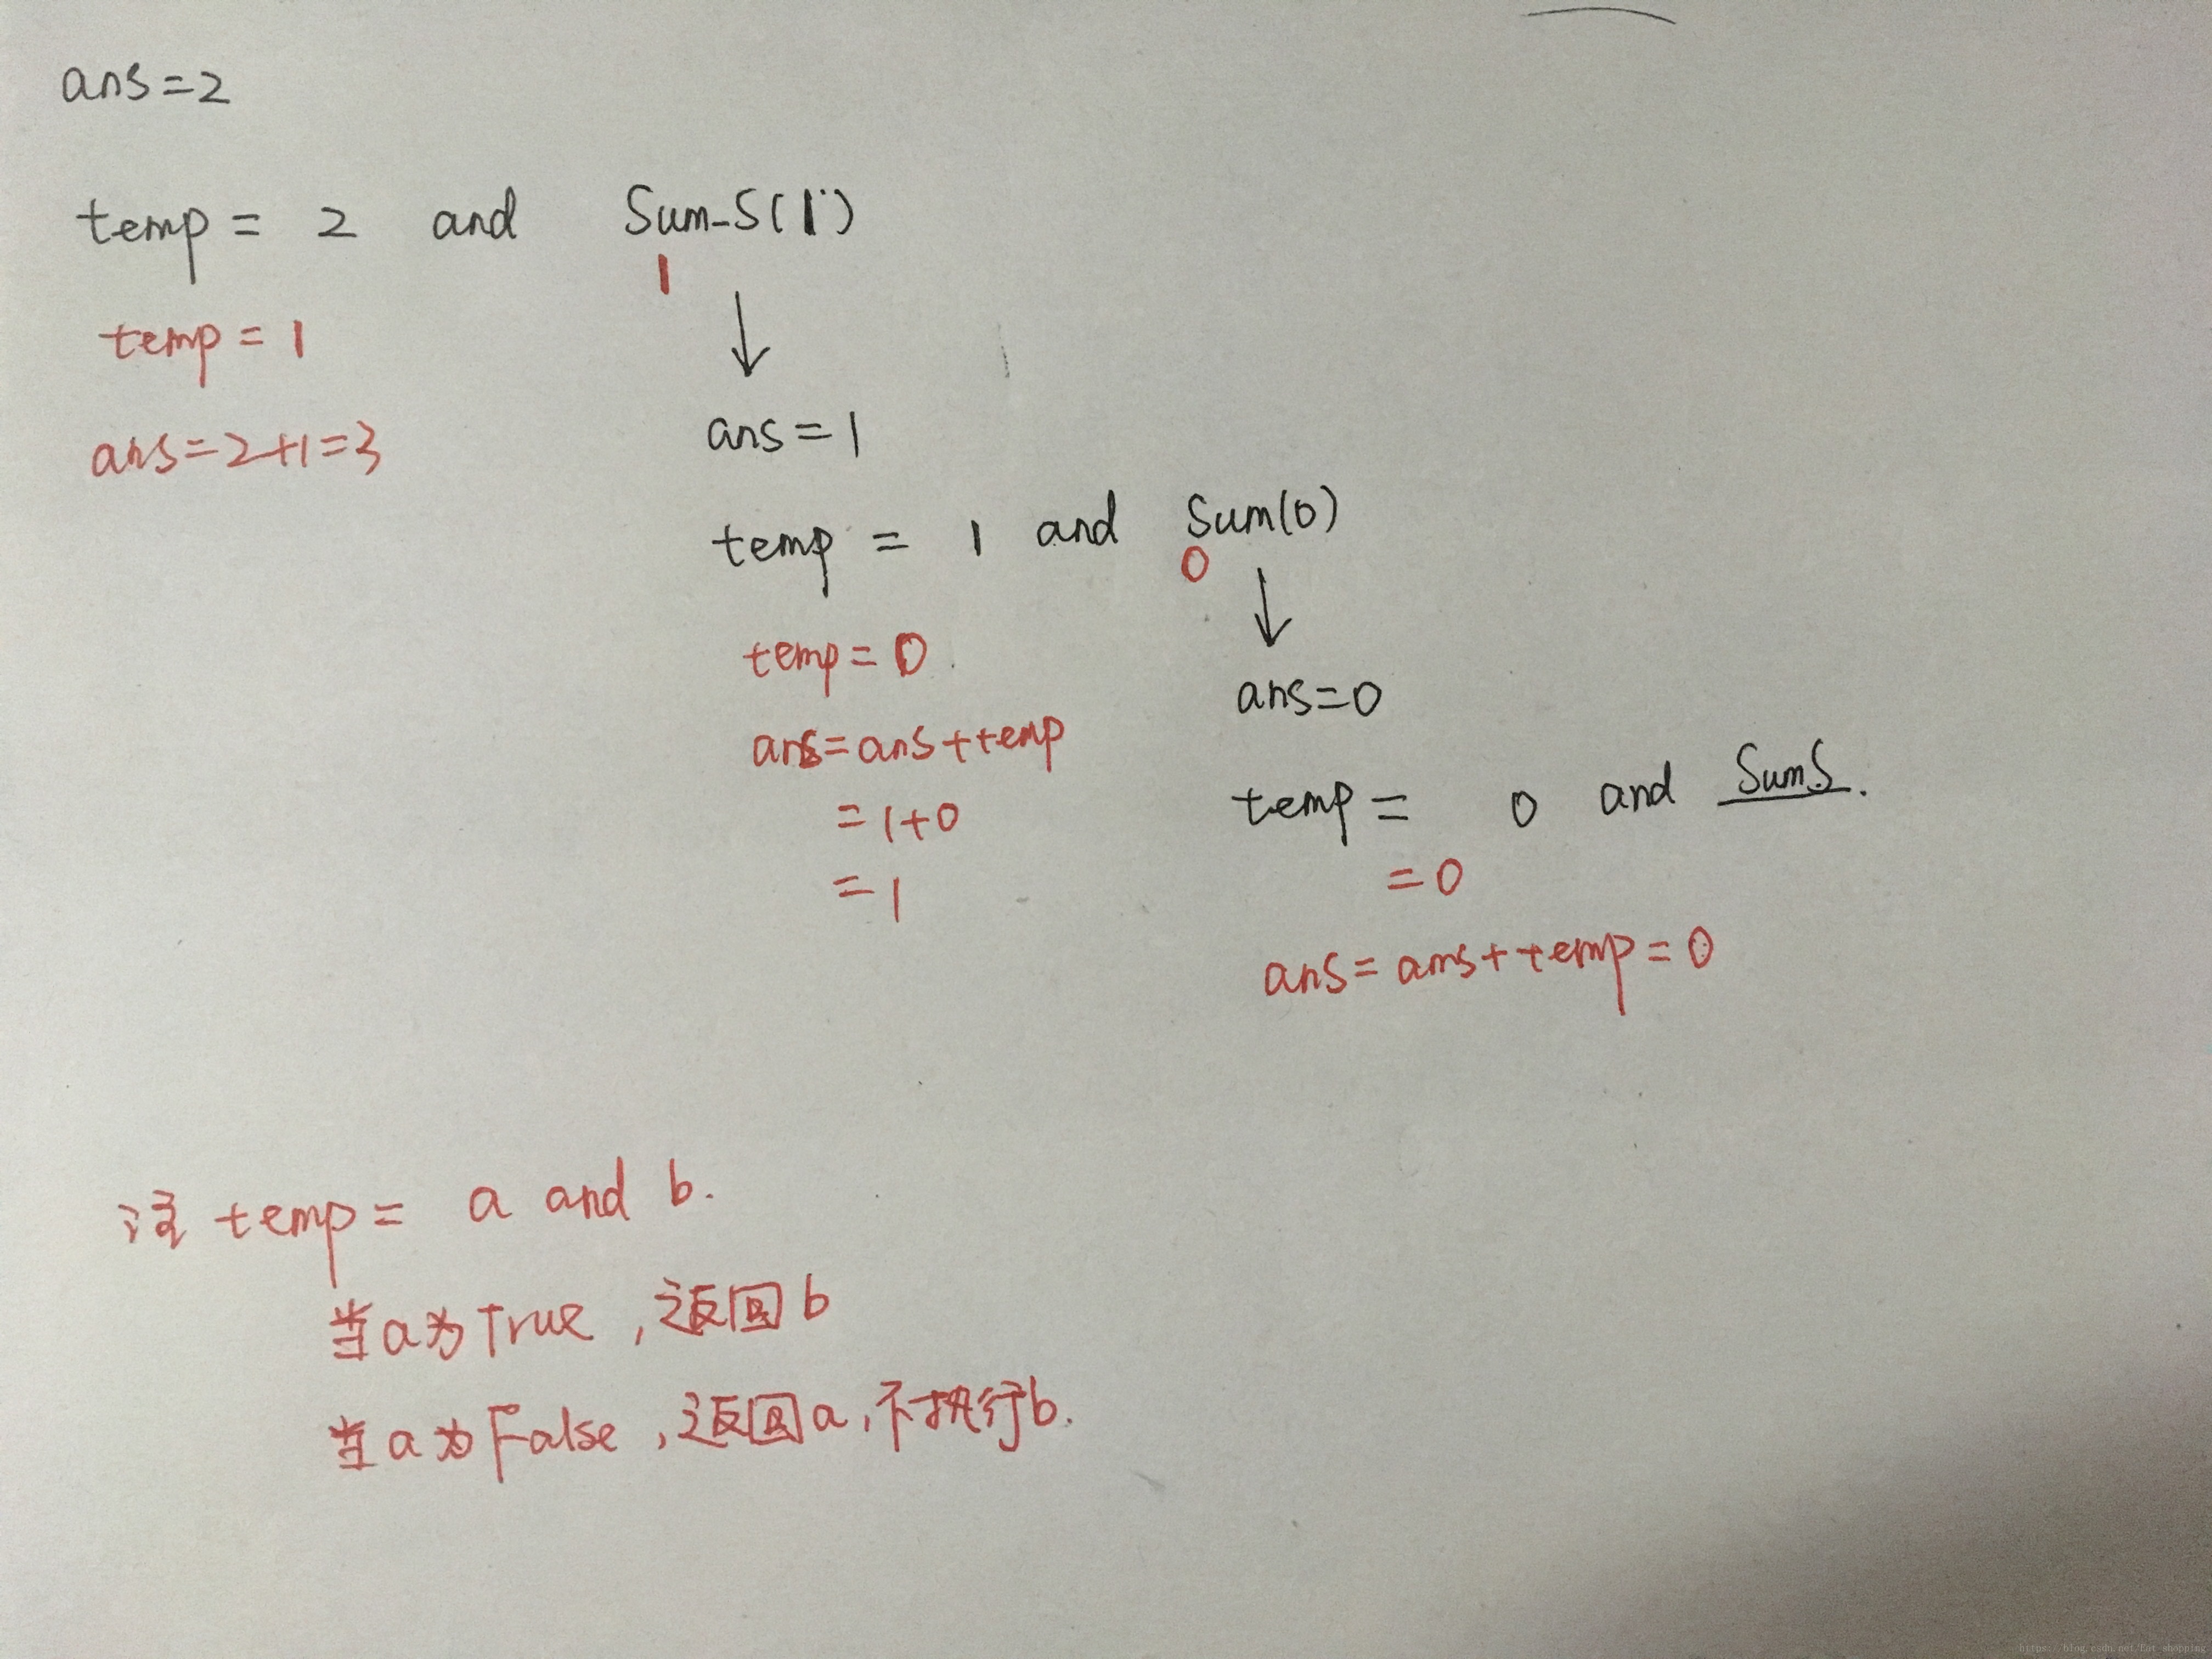 ans=2
temp = 2 and Sum_S(1)
1
temp = 1
ans=2+1=3
ans=1
temp = 1 and Sum(0)
0
temp=0
ans=ans+temp
=1+0
=1
ans=0
temp= 0 and SumS.
=0
ans=ans+temp=0
注 temp= a and b.
当a为True,返回b
当a为False,返回a,不执行b.